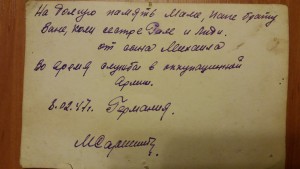 На долгую память Маме, Папе брату
Ване, Коли сестре Гале и Лиди.
от сына Михаила
Во время службы в оккупационной
Армии.
8.02.47г. Германия.